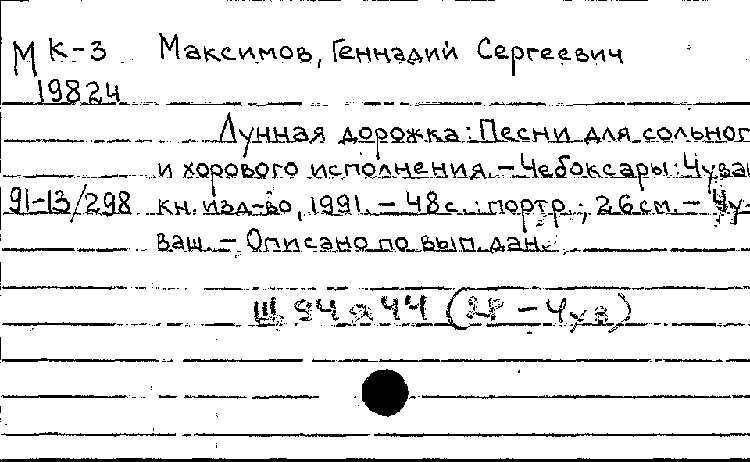 М К-3 Максимов, Геннадий Сергеевич
19824
Лунная дорожка: Песни для сольног
и хорового исполнения. – Чебоксары: Чуваш
91-13/298 кн. изд-во, 1991. – 48 с.: портр.; 26 см. – Чу-
ваш. – Описано по вып. дан.
Щ 94 я 44 (2Р – Чув)